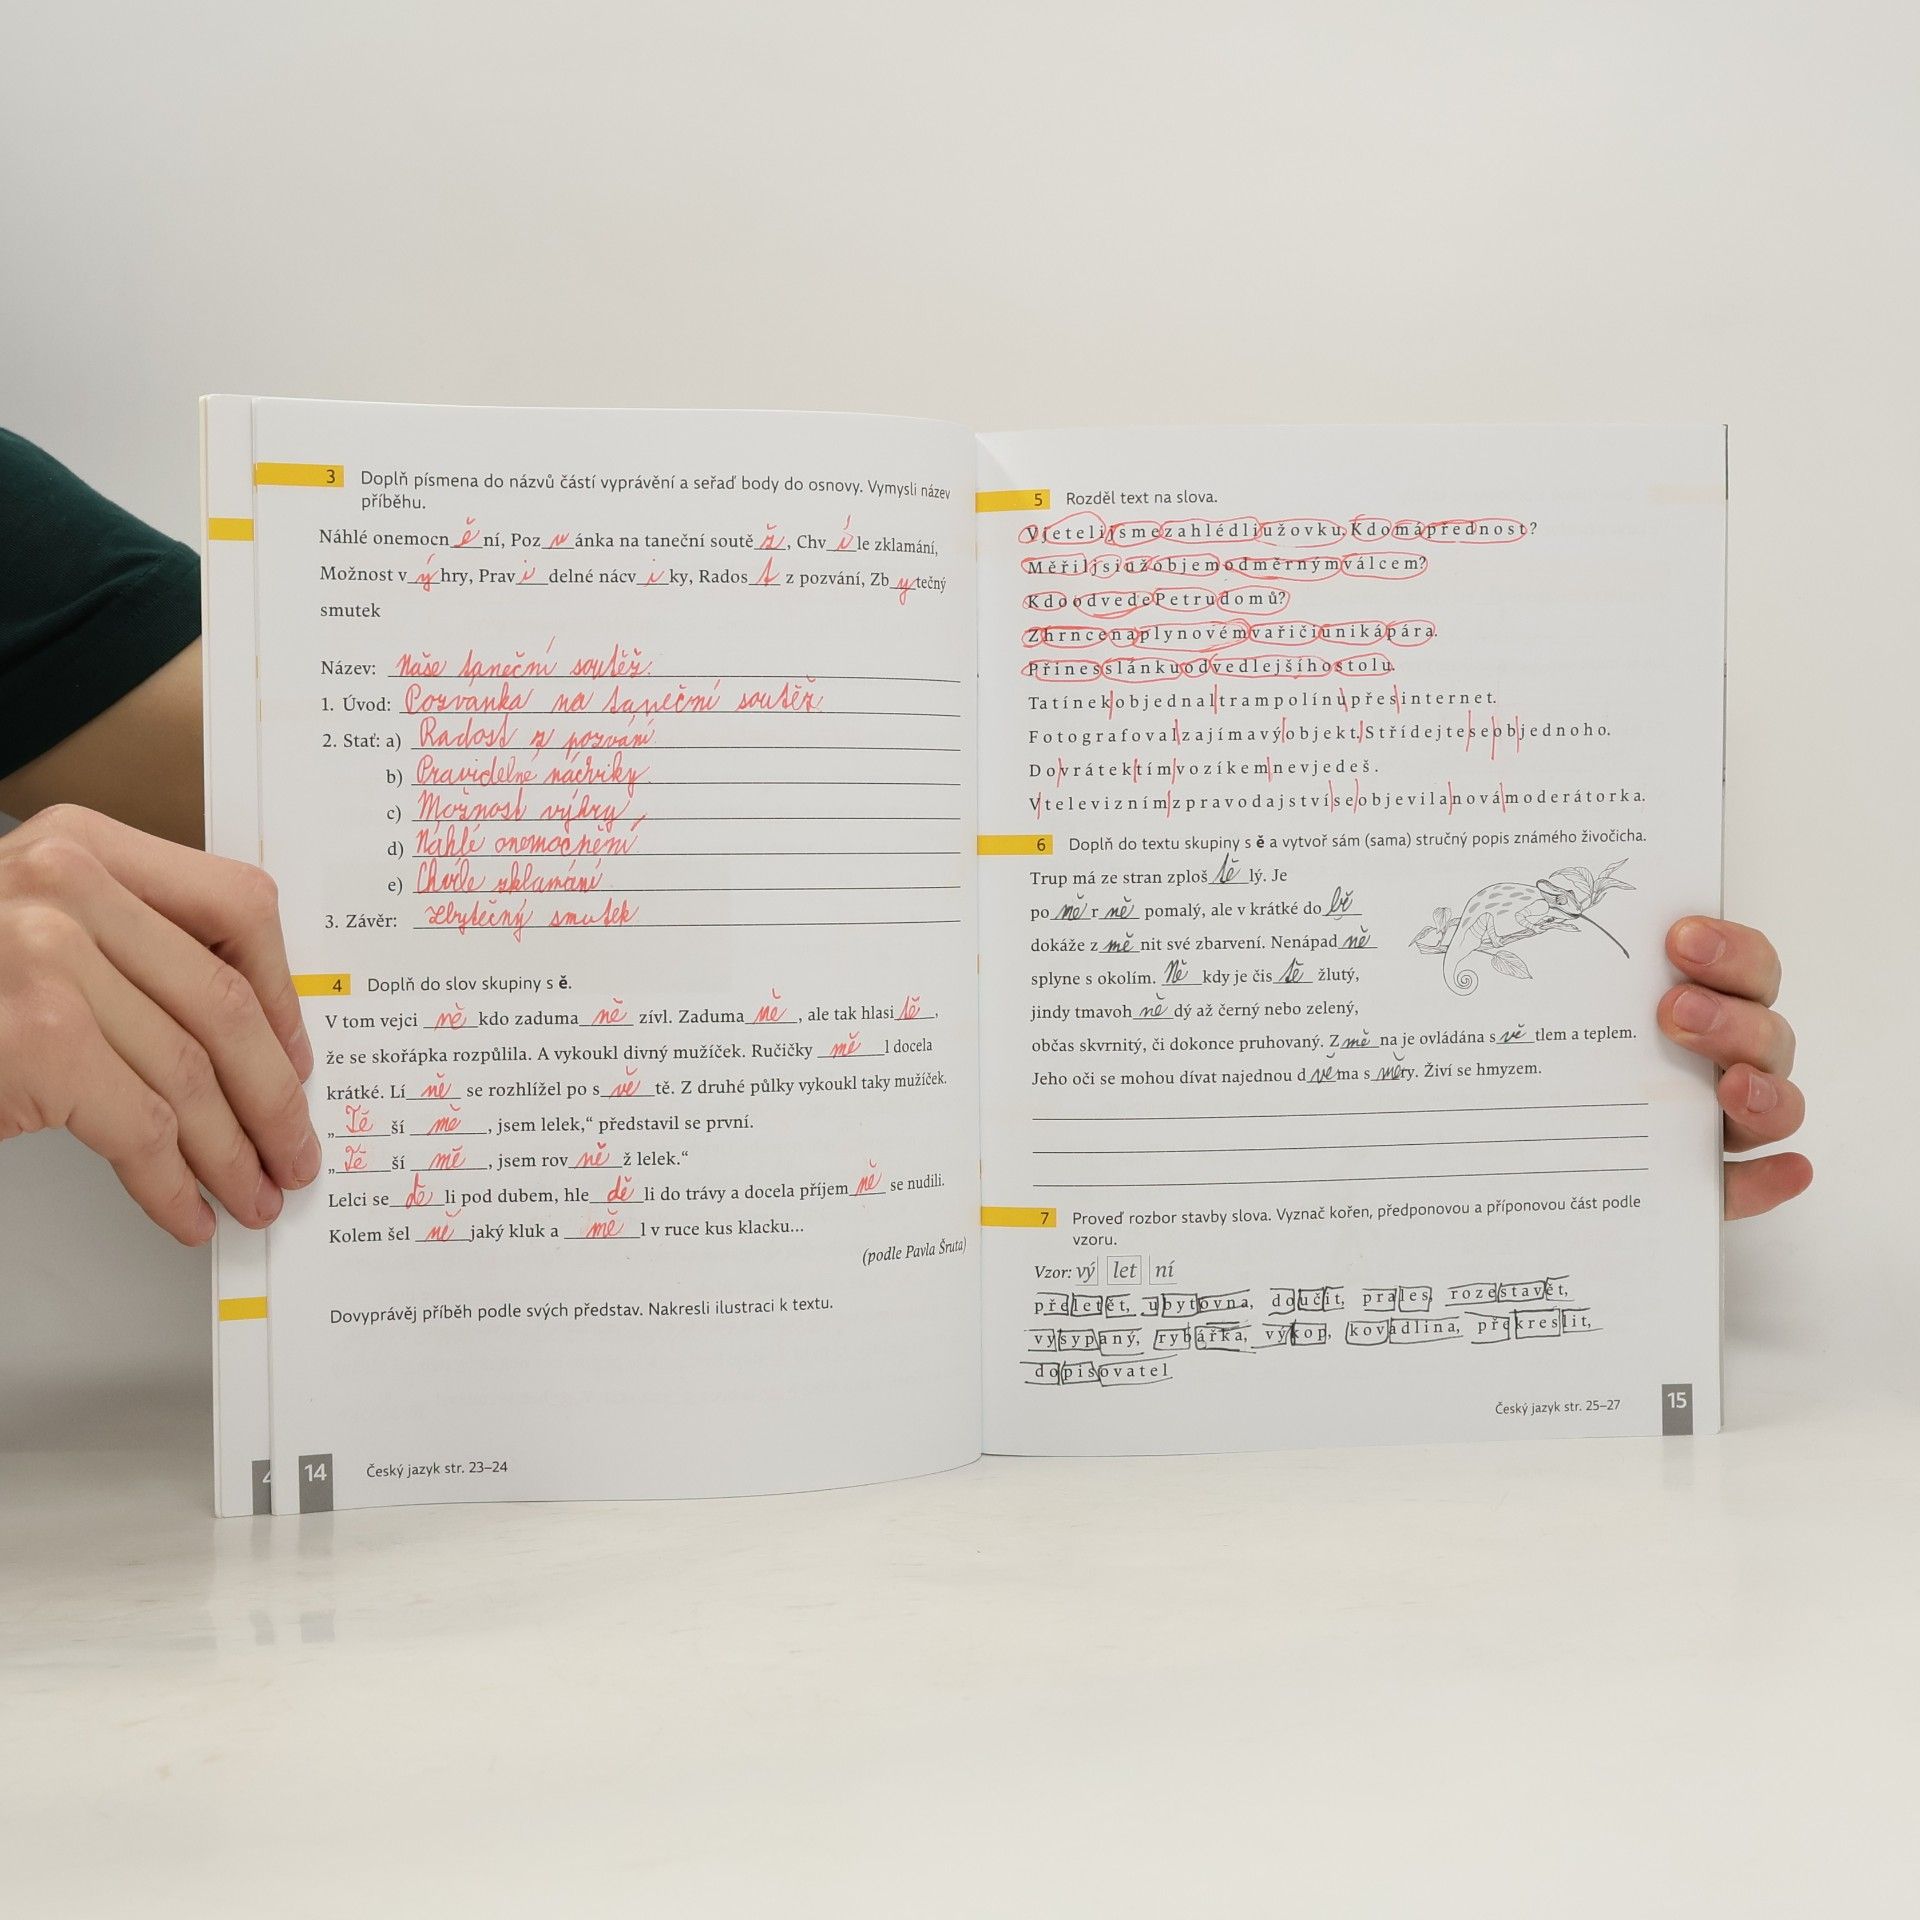 3 Doplň písmena do názvů částí vyprávění a seřaď body do osnovy. Vymysli název
příběhu.
Náhlé onemocn ě ní, Poz v ánka na taneční soutě ž, Chv í le zklamání,
Možnost v ý hry, Prav i delné nácv i ky, Rados t z pozvání, Zb y tečný
smutek
Název: Naše taneční soutěž.
1. Úvod: Pozvánka na taneční soutěž
2. Stať: a) Radost z pozvání
b) Pravidelné nácviky
c) Možnost výhry
d) Náhlé onemocnění
e) Chvíle zklamání
3. Závěr: Zbytečný smutek
4 Doplň do slov skupiny s ě.
V tom vejci ně kdo zaduma ně zívl. Zaduma ně, ale tak hlasi tě,
že se skořápka rozpůlila. A vykoukl divný mužíček. Ručičky mě l docela
krátké. Lí ně se rozhlížel po s vě tě. Z druhé půlky vykoukl taky mužíček.
„ Tě ší mě, jsem lelek,“ představil se první.
„ Tě ší mě, jsem rov ně ž lelek.“
Lelci se dě li pod dubem, hle dě li do trávy a docela příjem ně se nudili.
Kolem šel ně jaký kluk a mě l v ruce kus klacku...
(podle Pavla Šruta)
Dovyprávěj příběh podle svých představ. Nakresli ilustraci k textu.
4
14 Český jazyk str. 23–24
5 Rozděl text na slova.
Vjetelijsmezahlédliužovku.Kdomápřednost?
Měřiljsiužobjemodměrnýmválcem?
KdoodvedePetrudomů?
Zhrncenaplynovémvařičiunikápára.
Přinesslánkuodvedlejšíhostolu.
Tatínekobjednaltrampolínupřesinternet.
Fotografovalzajímavýobjekt.Střídejteseobjednoho.
Dovrátektímvozíkemnevjedeš.
Vteleviznímzpravodajstvíseobjevilanovámoderátorka.
6 Doplň do textu skupiny s ě a vytvoř sám (sama) stručný popis známého živočicha.
Trup má ze stran zploš tě lý. Je
po mě r ně pomalý, ale v krátké do bě
dokáže z mě nit své zbarvení. Nenápad ně
splyne s okolím. Ně kdy je čis tě žlutý,
jindy tmavoh ně dý až černý nebo zelený,
občas skvrnitý, či dokonce pruhovaný. Z mě na je ovládána s vě tlem a teplem.
Jeho oči se mohou dívat najednou d vě ma s mě ry. Živí se hmyzem.
7 Proveď rozbor stavby slova. Vyznač kořen, předponovou a příponovou část podle
vzoru.
Vzor: vý let ní
přeletět, ubytovna, doučit, prales, rozestavět,
vysypaný, rybářka, výkop, kovadlina, překreslit,
dopisovatel
Český jazyk str. 25–27 15